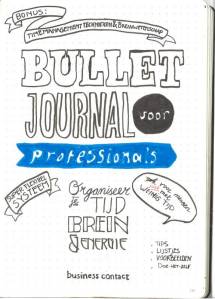 BONUS:
TIMEMANAGEMENT TECHNIEKEN & BREINWETENSCHAP
BULLET
JOURNAL
voor
professionals
SUPER FLEXIBEL
SYSTEEM
Organiseer
je TIJD
BREIN
& ENERGIE
ook voor mensen
met
weinig TIJD
. TIPS
. LIJSTJES
. VOORBEELDEN
. DOE-HET-ZELF
business contact